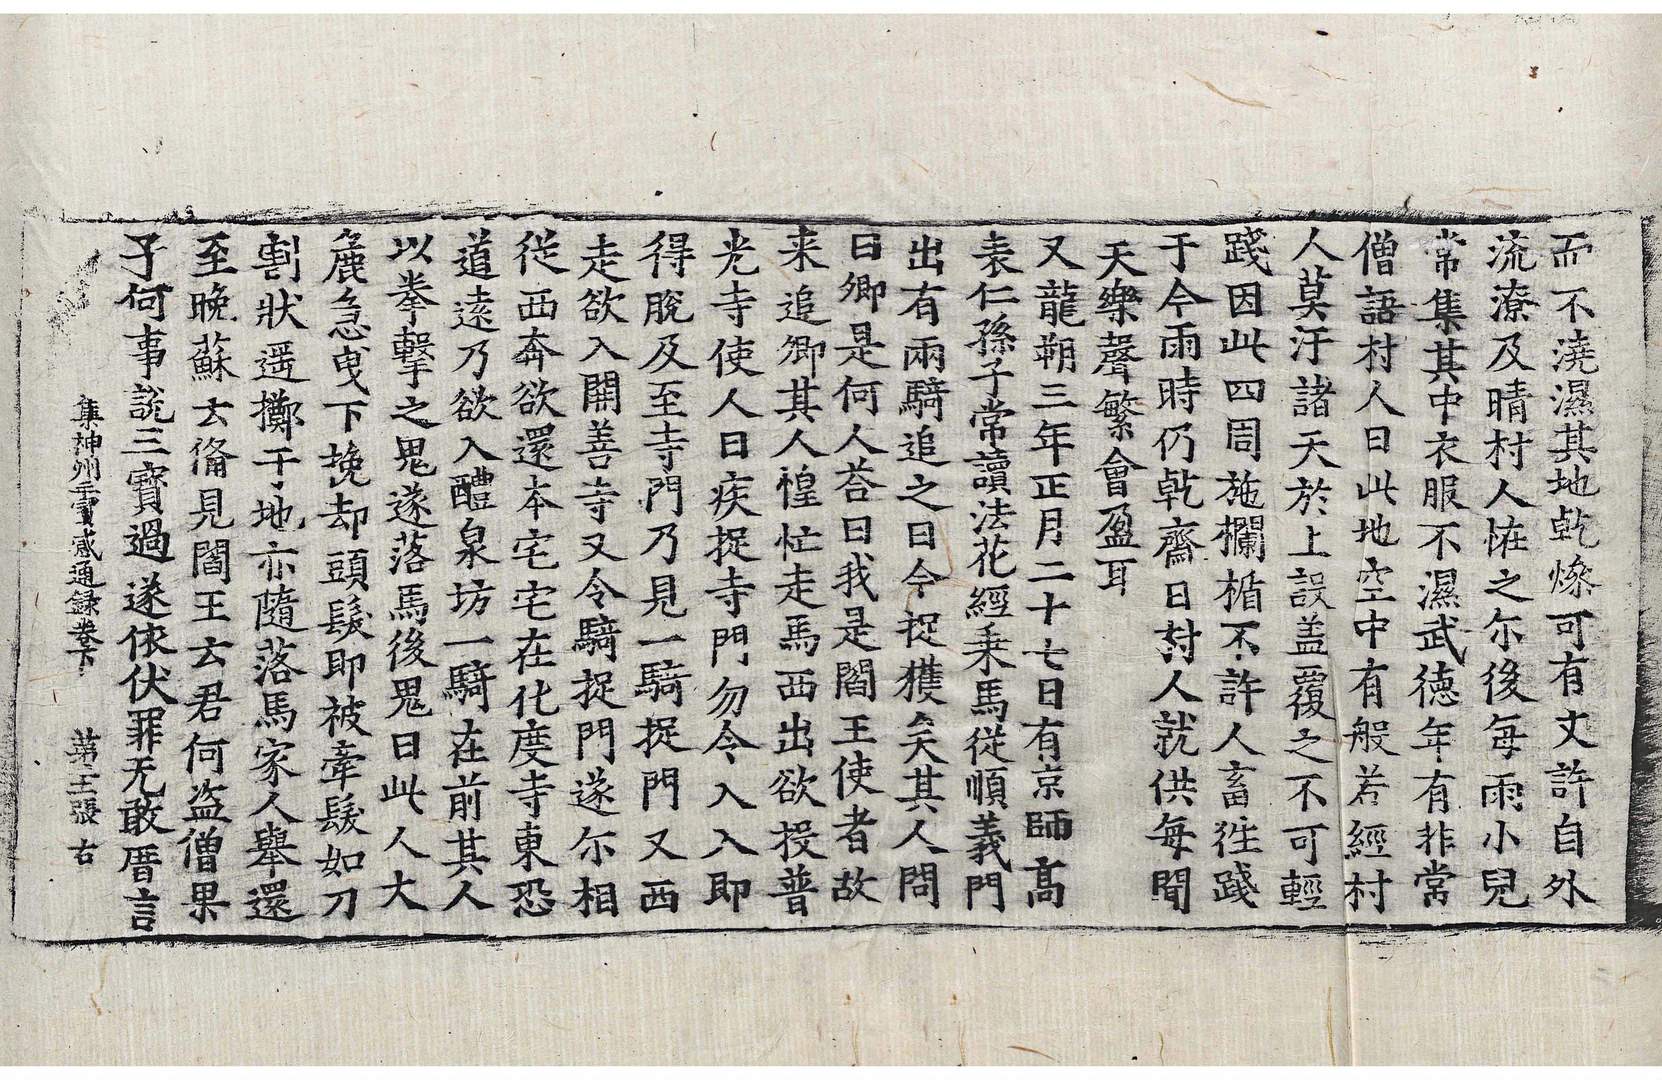 而不澆濕其地乹燥可有丈許自外
流潦及晴村人恠之尒後每雨小兒
常集其中衣服不濕武德年有非常
僧語村人曰此地空中有般若經村
人莫汙諸天於上設盖覆之不可輕
踐因此四周施欄楯不許人畜徃踐
于今雨時仍乹齋日村人就供每聞
天樂聲繁會盈耳
又龍朔三年正月二十七日有京師高
表仁孫子常讀法花經乗馬従順義門
出有兩騎追之曰今捉獲矣其人問
曰卿是何人荅曰我是閻王使者故
来追卿其人惶忙走馬西出欲投普
光寺使人曰疾捉寺門勿令入入即
得脫及至寺門乃見一騎捉門又西
走欲入開善寺又令騎捉門遂尒相
従西奔欲還本宅宅在化度寺東恐
道遠乃欲入醴泉坊一騎在前其人
以拳擊之鬼遂落馬後鬼曰此人大
麁急曳下挽却頭髮即被牽髮如刀
割狀遥擲于地亦隨落馬家人舉還
至晚蘇云俻見閻王云君何盗僧果
子何事說三寶過遂依伏罪无敢厝言
集神州三寶感通録卷下 第三張 右